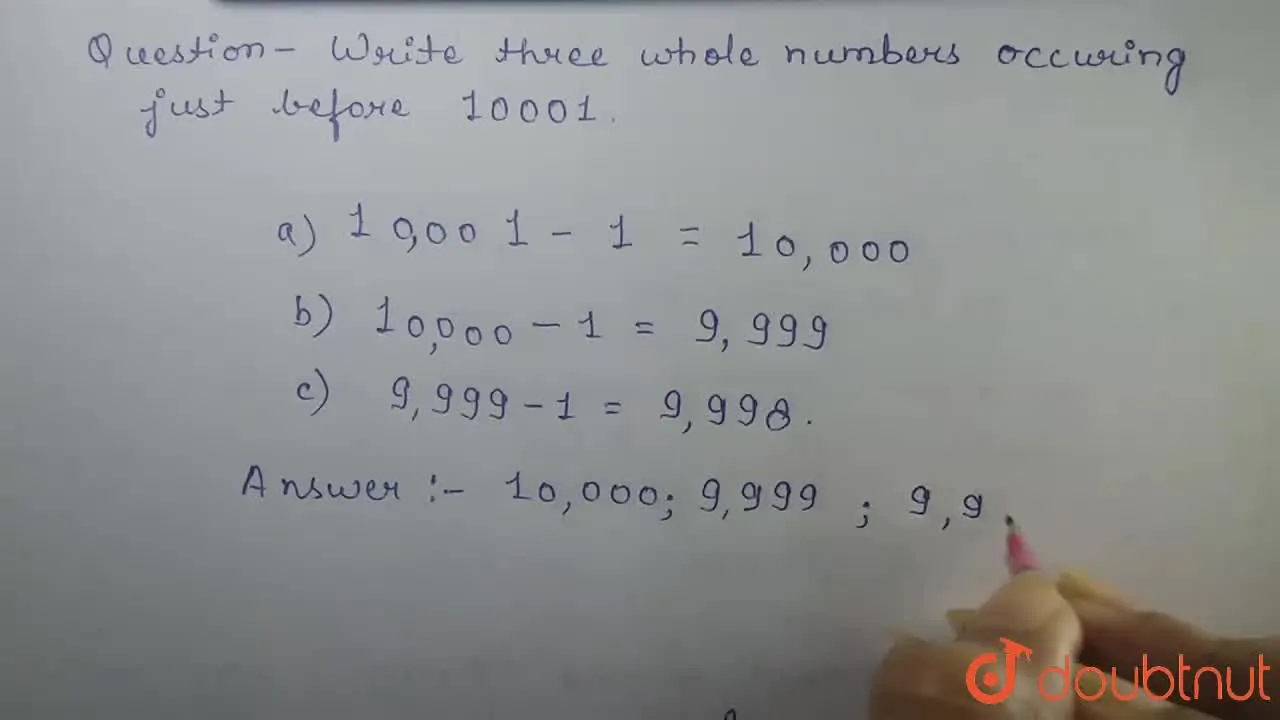 Question- Write three whole numbers occuring
just before 10001.
a) 10,001 - 1 = 10,000
b) 10,000 - 1 = 9,999
c) 9,999 - 1 = 9,998.
Answer :- 10,000; 9,999 ; 9,9
doubtnut